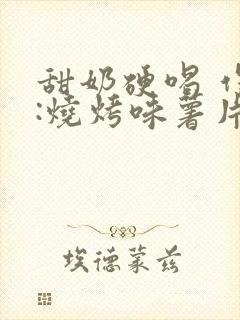 甜奶硬唱
:燒烤味薯片
埃德蒙兹